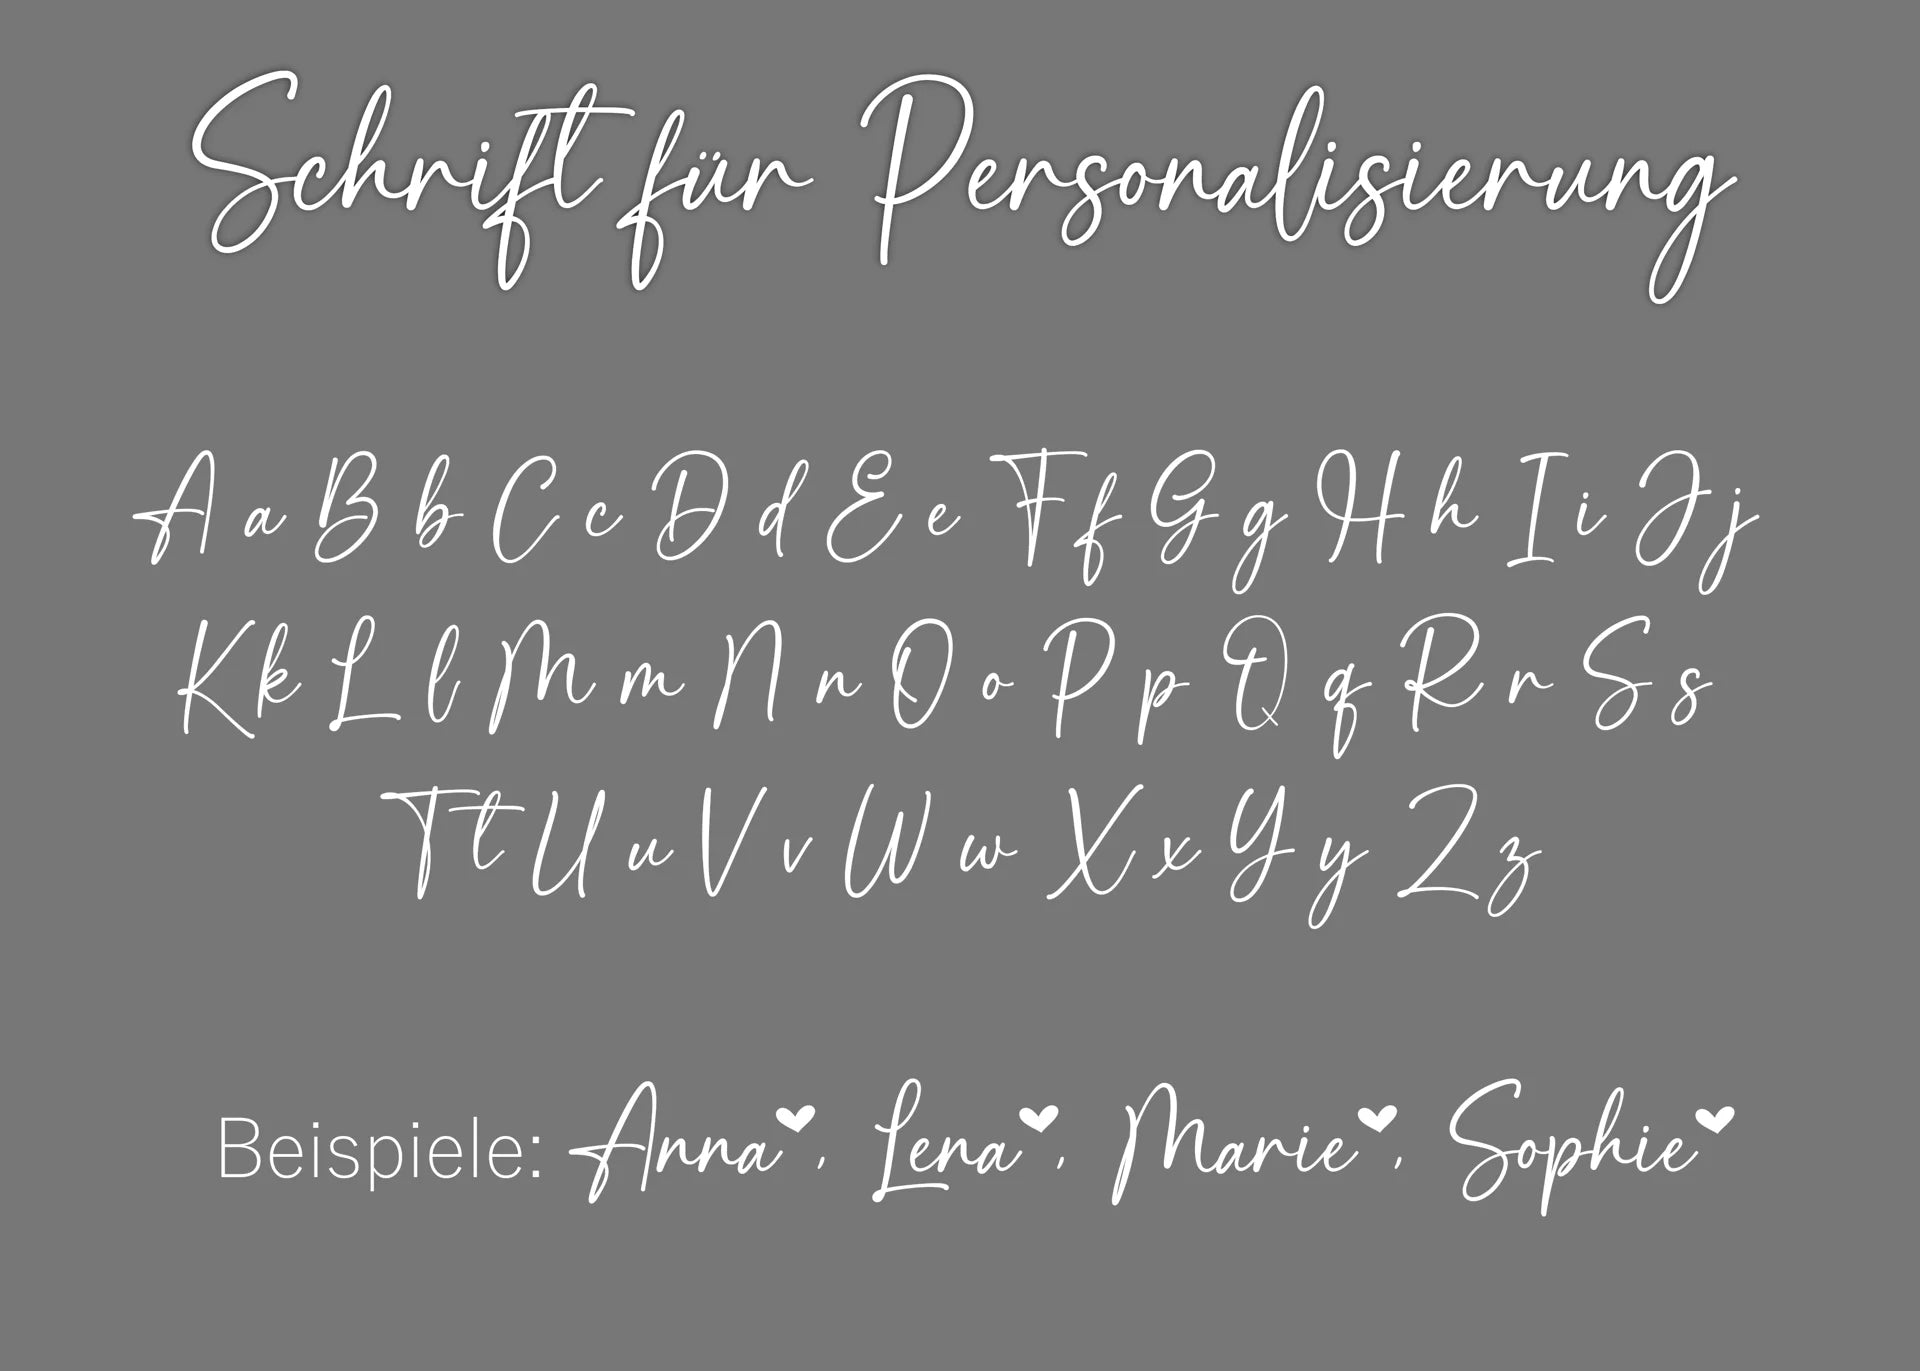 Schrift für Personalisierung
A a B b C c D d E e F f G g H h I i J j
K k L l M m N n O o P p Q q R r S s
T t U u V v W w X x Y y Z z
Beispiele: Anna♥, Lena♥, Marie♥, Sophie♥